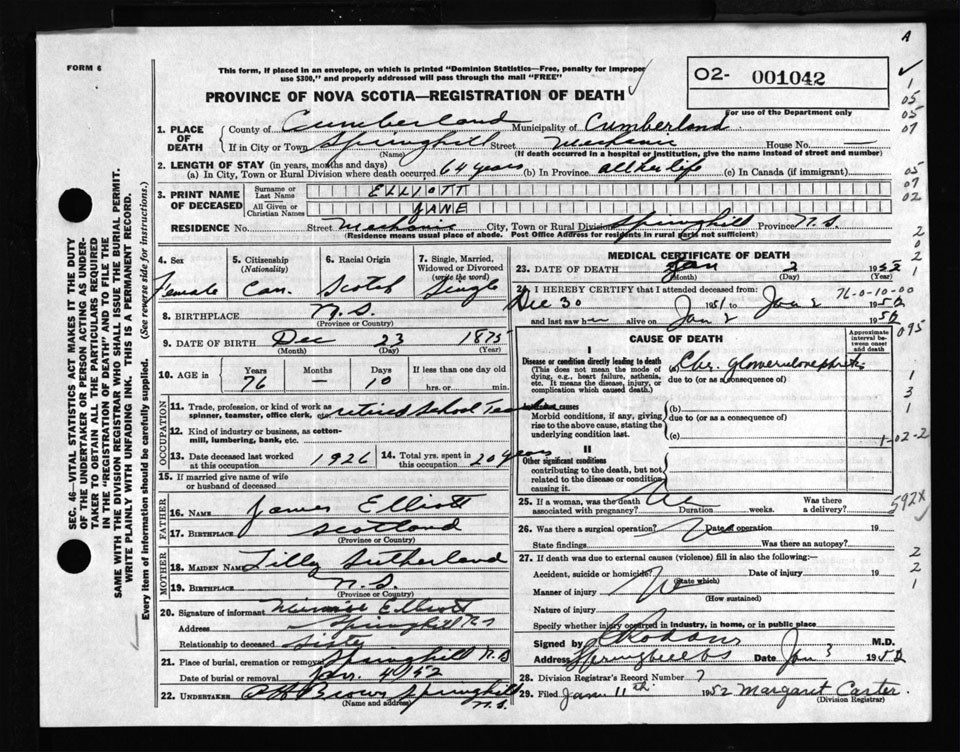 A
FORM 6
This form, if placed in an envelope, on which is printed "Dominion Statistics—Free, penalty for improper
use $300," and properly addressed will pass through the mail "FREE"
O2- 001042
For use of the Department only
PROVINCE OF NOVA SCOTIA—REGISTRATION OF DEATH
1. PLACE OF DEATH
County of Cumberland Municipality of Cumberland
If in City or Town Springhill Street Mechanic House No. —
(Name) (If death occurred in a hospital or institution, give the name instead of street and number)
2. LENGTH OF STAY (in years, months and days)
(a) In City, Town or Rural Division where death occurred 64 years (b) In Province all her life (c) In Canada (if immigrant)
3. PRINT NAME OF DECEASED
Surname or Last Name ELLIOTT
All Given or Christian Names JANE
RESIDENCE No. Street Mechanic City, Town or Rural Division Springhill Province N.S.
(Residence means usual place of abode. Post Office Address for residents in rural parts not sufficient)
4. Sex Female
5. Citizenship (Nationality) Can.
6. Racial Origin Scotch
7. Single, Married, Widowed or Divorced (write the word) Single
8. BIRTHPLACE N.S.
(Province or Country)
9. DATE OF BIRTH Dec 23 1875
(Month) (Day) (Year)
10. AGE in Years 76 Months — Days 10 If less than one day old hrs. or min.
OCCUPATION
11. Trade, profession, or kind of work as spinner, teamster, office clerk, etc. retired School Teacher
12. Kind of industry or business, as cotton-mill, lumbering, bank, etc.
13. Date deceased last worked at this occupation 1926
14. Total yrs. spent in this occupation 20 years
15. If married give name of wife or husband of deceased
FATHER
16. NAME James Elliott
17. BIRTHPLACE Scotland
(Province or Country)
MOTHER
18. MAIDEN NAME Lilly Sutherland
19. BIRTHPLACE N.S.
(Province or Country)
20. Signature of informant Elliott
Address Springhill N.S
Relationship to deceased Sister
21. Place of burial, cremation or removal Springhill N.S
Date of burial or removal Jan. 4th/52
22. UNDERTAKER Brown Springhill N.S.
(Name and address)
MEDICAL CERTIFICATE OF DEATH
23. DATE OF DEATH Jan 2 1952
(Month) (Day) (Year)
24. I HEREBY CERTIFY that I attended deceased from: 76-0-10-00
Dec 30 1951 to Jan 2 1952
and last saw her alive on Jan 2 1952
CAUSE OF DEATH
Approximate interval between onset and death
I
Disease or condition directly leading to death
(This does not mean the mode of dying, e.g., heart failure, asthenia, etc. It means the disease, injury, or complication which caused death.)
(a) Chr. glomerulonephritis
due to (or as a consequence of)
Antecedent causes
Morbid conditions, if any, giving rise to the above cause, stating the underlying condition last.
(b)
due to (or as a consequence of)
(c)
II
Other significant conditions
contributing to the death, but not related to the disease or condition causing it.
25. If a woman, was the death associated with pregnancy? No Duration weeks. Was there a delivery?
26. Was there a surgical operation? No Date of operation 19
State findings Was there an autopsy?
27. If death was due to external causes (violence) fill in also the following:
Accident, suicide or homicide? Date of injury 19
(State which)
Manner of injury
(How sustained)
Nature of injury
Specify whether injury occurred in Industry, in home, or in public place
Signed by M.D.
Address Springhill NS Date Jan 3 1952
28. Division Registrar's Record Number 7
29. Filed Jan 11th 1952 Margaret Carter.
(Division Registrar)
SEC. 46—VITAL STATISTICS ACT MAKES IT THE DUTY
OF THE UNDERTAKER OR PERSON ACTING AS UNDER-
TAKER TO OBTAIN ALL THE PARTICULARS REQUIRED
IN THE "REGISTRATION OF DEATH" AND TO FILE THE
SAME WITH THE DIVISION REGISTRAR WHO SHALL ISSUE THE BURIAL PERMIT.
WRITE PLAINLY WITH UNFADING INK. THIS IS A PERMANENT RECORD.
Every item of information should be carefully supplied. (See reverse side for instructions.)
1
05
05
07
05
07
02
2
0
2
1
095
1
3
1
1-02-2
592X
2
2
1